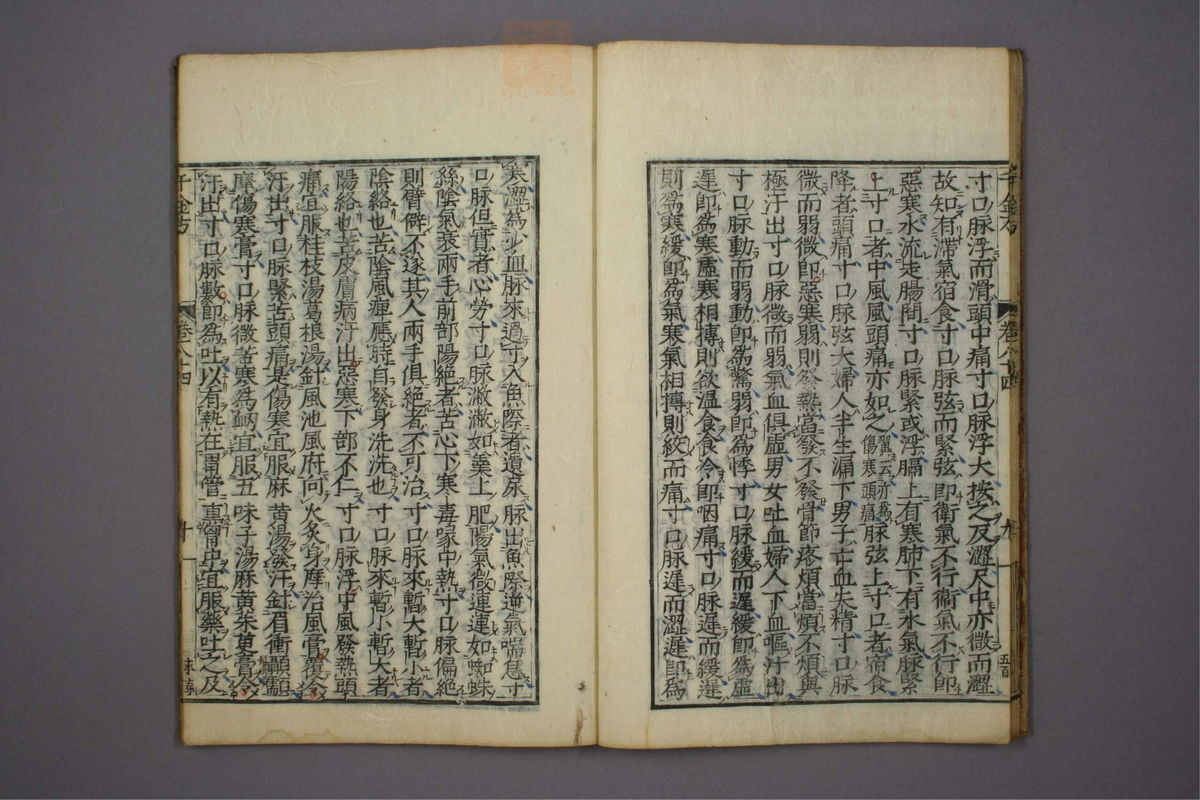 寸口脉浮而滑頭中痛寸口脉浮大按之反澀尺中亦微而澀
故知有滯氣宿食寸口脉弦而緊弦即衛氣不行衛氣不行即
惡寒水流走腸間寸口脉緊或浮膈上有寒肺下有水氣脉緊
上寸口者中風風頭痛亦如之傷寒頭痛脉弦上寸口者宿食
降者頭痛寸口脉弦大婦人半生漏下男子亡血失精寸口脉
微而弱微即惡寒弱則發熱當發不發骨節疼煩當煩不煩與
極汗出寸口脉微而弱氣血俱虛男女吐血婦人下血嘔汁出
寸口脉動而弱動即為驚弱即為悸寸口脉緩而遲緩即為虛
遲即為寒虛寒相摶則欲温食食冷即咽痛寸口脉遲而緩遲
則為寒緩即為氣寒氣相摶則絞而痛寸口脉遲而澀遲即為
千金方
卷八十四
九
五百
寒澀為少血脉來過寸入魚際者遺尿脉出魚際逆氣喘息寸
口脉但實者心勞寸口脉潎潎如羹上肥陽氣微連連如蜘蛛
絲陰氣衰兩手前部陽絶者苦心下寒毒喙中熱寸口脉偏絶
則臂僻不遂其人兩手俱絶者不可治寸口脉來暫大暫小者
陰絡也苦陰風痺應時自發身洗洗也寸口脉來暫小暫大者
陽絡也苦皮膚病汗出惡寒下部不仁寸口脉浮中風發熱頭
痛宜服桂枝湯葛根湯針風池風府向火灸身摩治風膏覆
汗出寸口脉緊苦頭痛是傷寒宜服麻黄湯發汗針眉衝顳顬
摩傷寒膏寸口脉微苦寒為衂宜服五味子湯麻黄茱萸膏
汗出寸口脉數即為吐以有熱在胃管熏胷中宜服藥吐之及
千金方
卷八十四
十